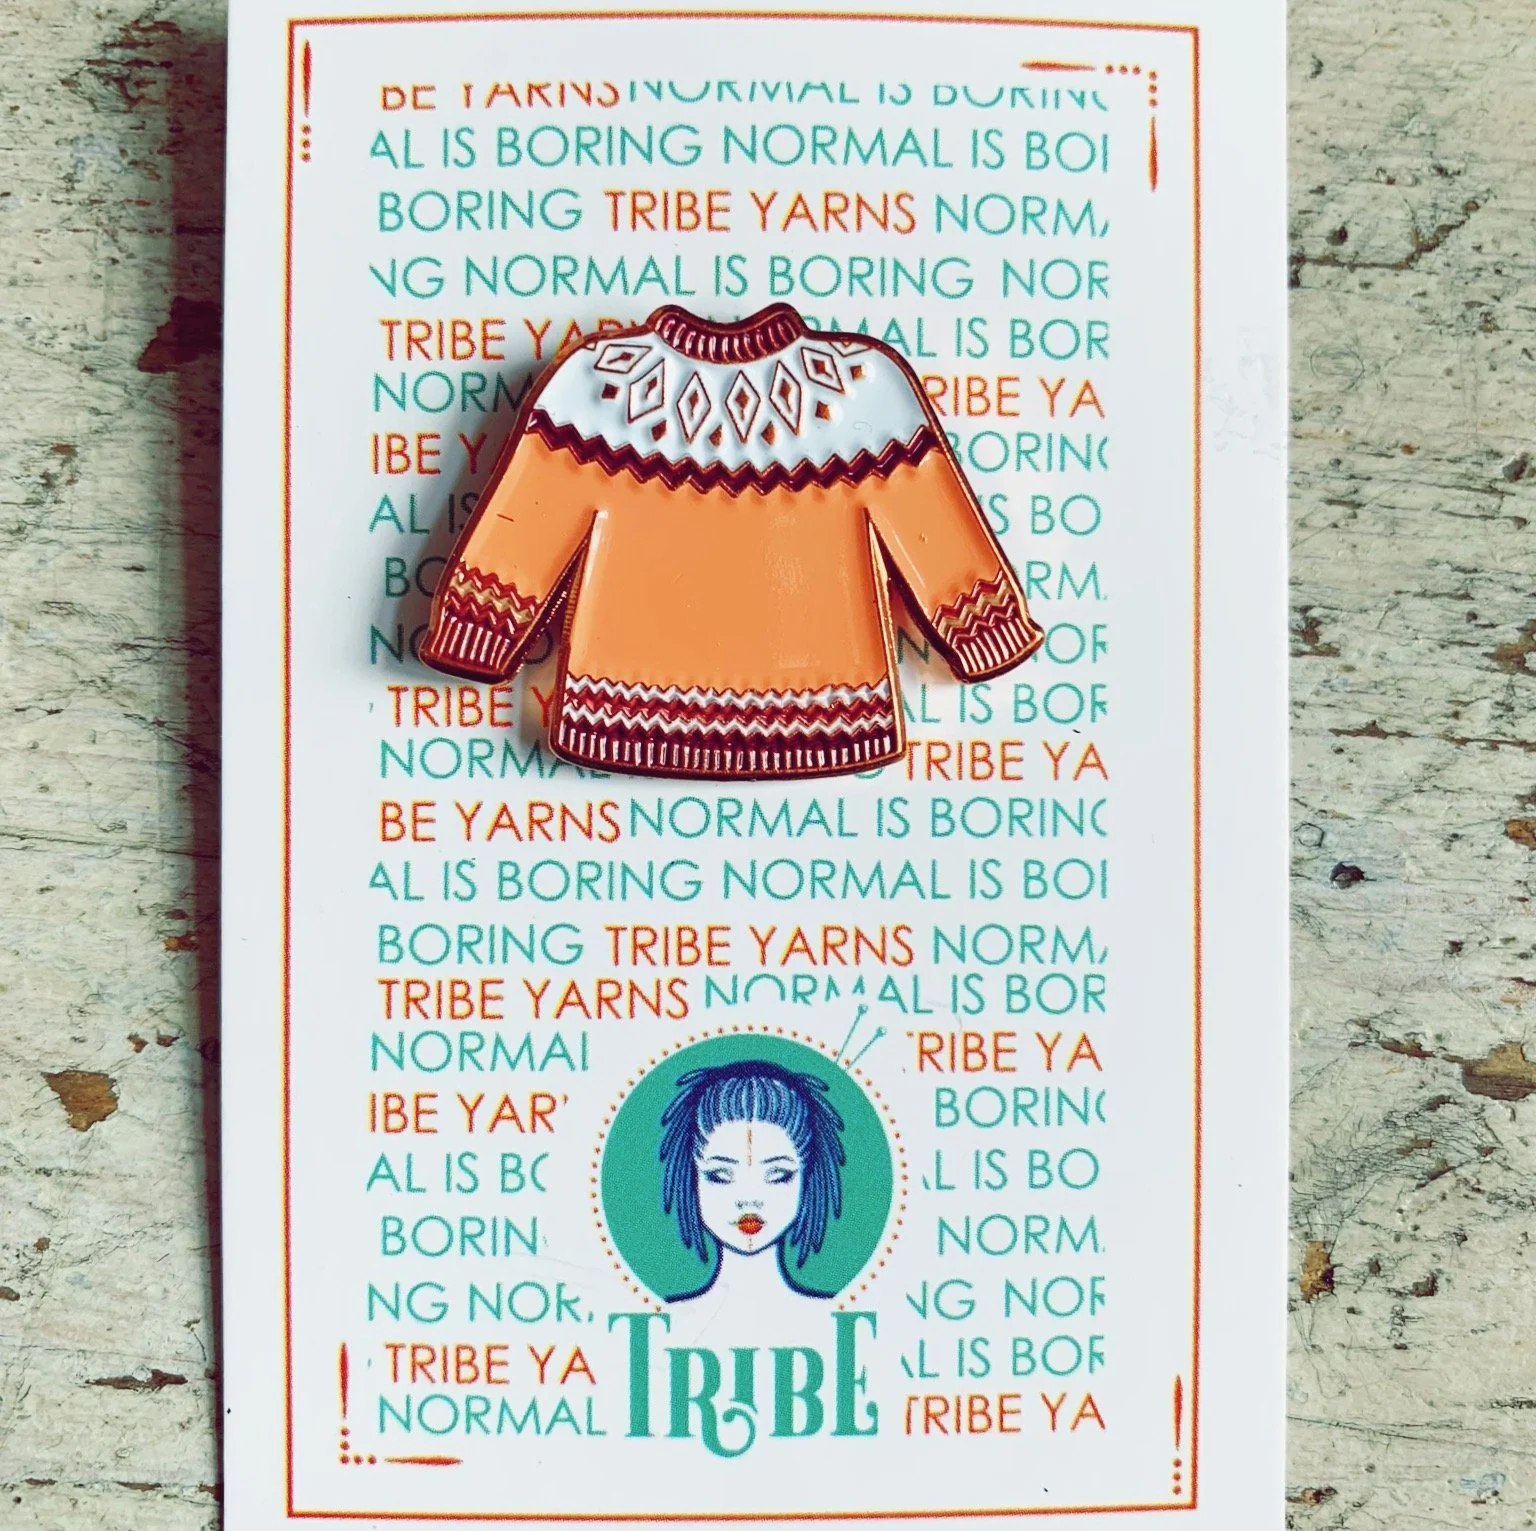 BE YARNS NORMAL IS BORING
AL IS BORING NORMAL IS BOR
BORING TRIBE YARNS NORMA
NG NORMAL IS BORING NOR
TRIBE YAR MAL IS BOR
NORM RIBE YA
IBE Y BORING
AL IS IS BO
BO RM
NO N NOR
TRIBE Y AL IS BOR
NORMAL G TRIBE YA
BE YARNS NORMAL IS BORING
AL IS BORING NORMAL IS BOR
BORING TRIBE YARNS NORMA
TRIBE YARNS NORMAL IS BOR
NORMAL TRIBE YA
IBE YAR BORING
AL IS BO L IS BO
BORIN NORM
NG NOR NG NOR
TRIBE YA AL IS BOR
NORMAL TRIBE TRIBE YA